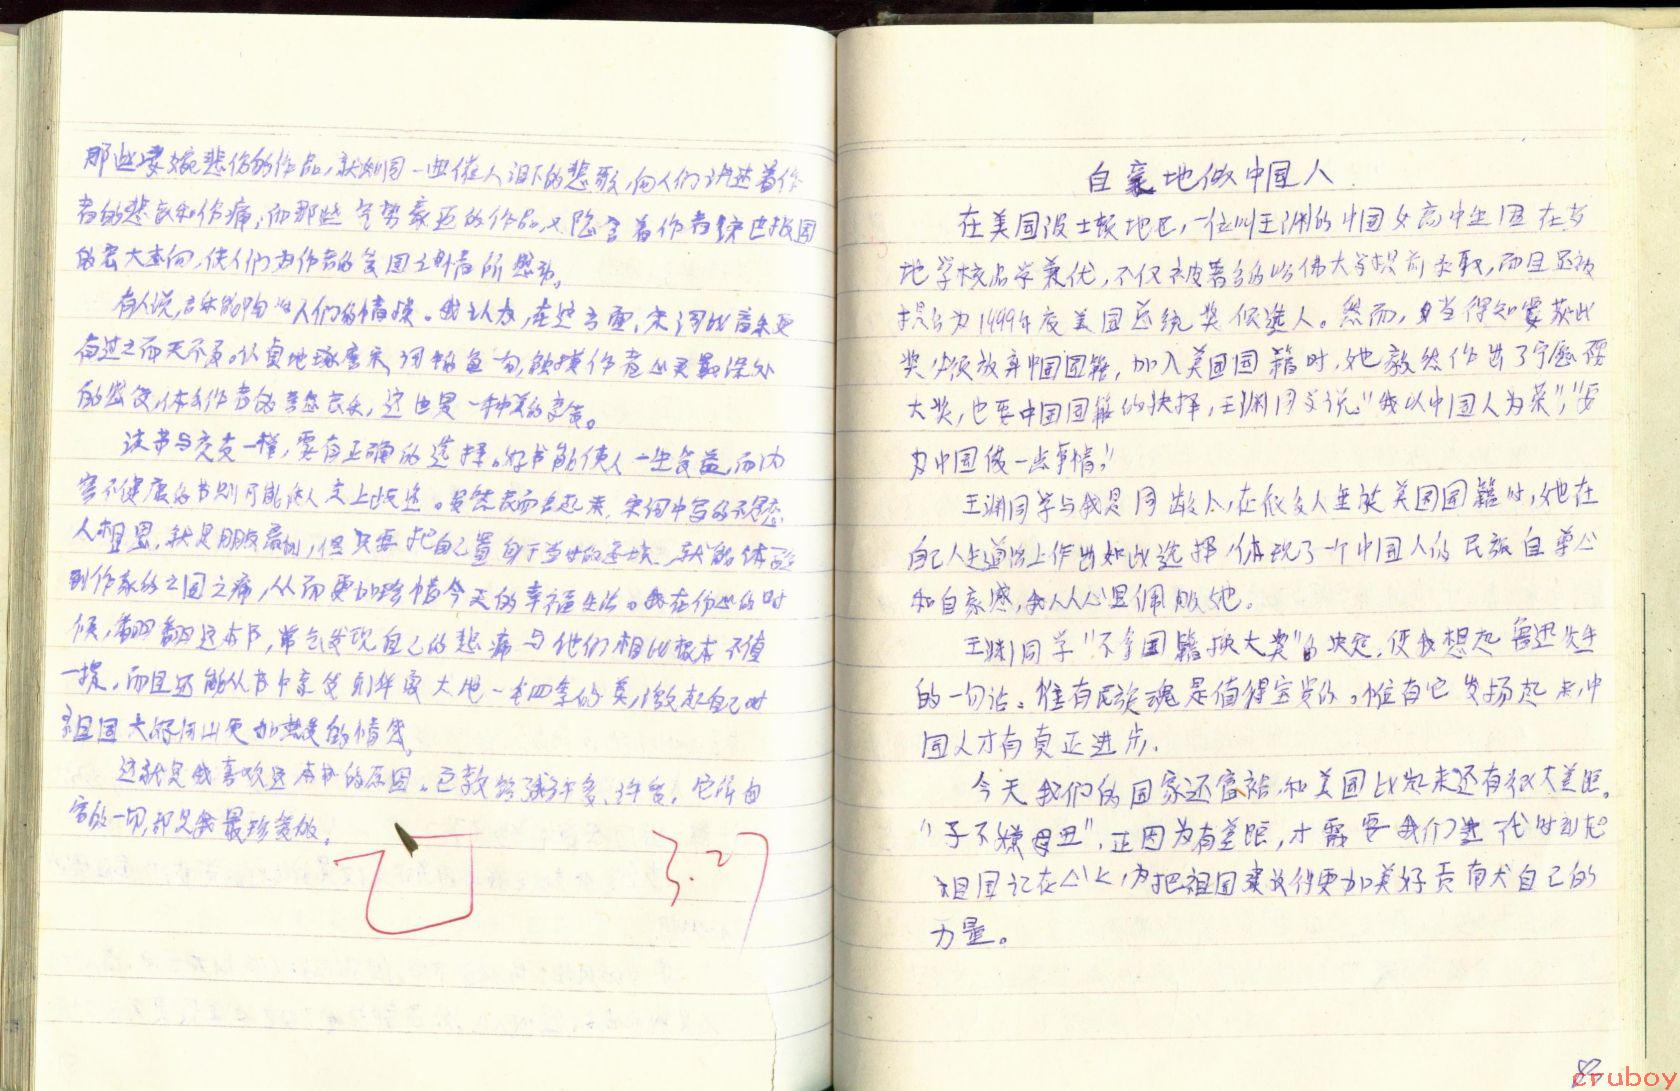 那些凄婉悲伤的作品,就如同一曲催人泪下的悲歌,向人们讲述着作
者的悲哀和伤痛;而那些气势豪迈的作品,又隐含着作者精忠报国
的宏大志向,使人们为作者的爱国之情所感动。
有人说,音乐能陶冶人们的情操。我认为,在这方面,宋词比音乐更
有过之而无不及。认真地琢磨宋词中的每一句,触摸作者心灵最深处
的感受,体会作者的喜怒哀乐,这也是一种美的享受。
读书与交友一样,要有正确的选择。好书能使人一生受益,而内
容不健康的书则可能让人走上歧途。虽然表面看起来,宋词中写的不是
人相思,就是朋友离别,但只要把自己置身于当时的环境,就能体会
到作家的亡国之痛,从而更加珍惜今天的幸福生活。我在伤心的时
候,翻翻这本书,常会发现自己的悲痛与他们相比根本不值
一提,而且还能从书中亲身到华夏大地一年四季的美,激起自己对
祖国大好河山更加热爱的情感。
这就是我喜欢这本书的原因。它教给了我许多、许多,它所内
容的一切,都是我最珍爱的。
3.27
自豪地做中国人
在美国波士顿地区,一位叫王渊的中国女高中生因在当
地学校品学兼优,不仅被著名的哈佛大学提前录取,而且还被
提名为1999年度美国总统奖候选人。然而,当得知要获此
奖必须放弃中国国籍,加入美国国籍时,她毅然作出了宁愿不要
大奖,也要中国国籍的抉择,王渊同学说:"我以中国人为荣","要
为中国做一点事情。"
王渊同学与我是同龄人,在很多人垂涎美国国籍时,她在
自己人生道路上作出如此选择,体现了一个中国人的民族自尊心
和自豪感,我从心里佩服她。
王渊同学"不拿国籍换大奖"的决定,使我想起鲁迅先生
的一句话。惟有民族魂是值得宝贵的。惟有它发扬起来,中
国人才有真正进步。
今天我们的国家还富裕,和美国比起来还有很大差距。
"子不嫌母丑",正因为有差距,才需要我们这一代时刻把
祖国记在心上,为把祖国建设得更加美好贡献自己的
力量。
cruboy